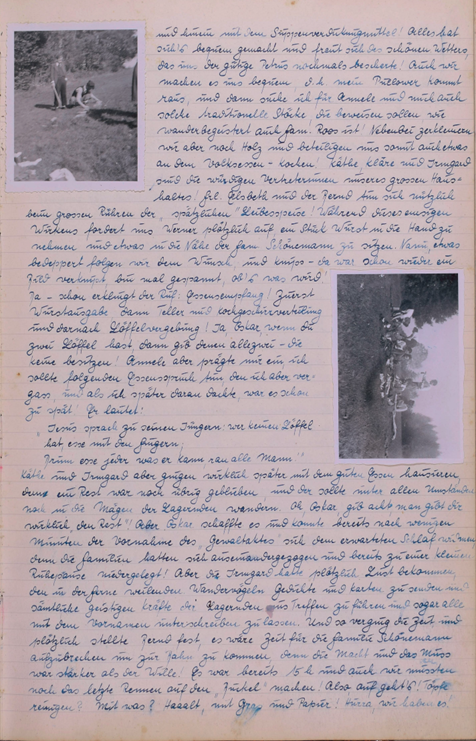 und hinein mit dem Suppenverdickungsmittel! Alles hat
sich's bequem gemacht und freut sich des schönen Wetters,
das uns der gütige Petrus nochmals bescherte! Auch wir
machen es uns bequem, d.h. mein Pullower kommt
raus, und dann suche ich für Annele und mich auch
solche traditionelle Stöcke, die beweisen sollen wie
wanderbegeistert auch fam. Roos ist! Nebenbei zerkleinern
wir aber noch Holz und beteiligen uns somit auch etwas
an dem Volksessen - kochen! Käthe, Kläre und Irmgard
sind die würdigen Vertreterinnen unseres grossen Haus-
haltes! Frl. Elsbeth und der Bernd tun sich nützlich
beim grossen Rühren der "spätzlichen" Leibesspeise! Während dieses emsigen
Wirkens fordert uns Werner plötzlich auf ein Stück Wurst in die Hand zu
nehmen und etwas in die Nähe der fam. Schönemann zu sitzen. Nanu, etwas
bedeppert folgen wir dem Wunsch, und knips - da war schon wieder ein
Bild verknipst, bin mal gespannt, ob's was wird!
Ja - schon erklingt der Ruf: Essensempfang! Zuerst
Wurstausgabe dann Teller und Kochgeschirrverteilung
und darnach Löffelvergebung! Ja Oskar, wenn du
zwei Löffel hast, dann gib denen allezwei - die
keine besitzen! Annele aber prägte mir ein ich
sollte folgenden Essensspruch tun den ich aber ver-
gass, und als ich später daran dachte, war es schon
zu spät! Er lautet:
"Jesus sprach zu seinen Jüngern: wer keinen Löffel
hat, esse mit den Fingern;
Drum esse jeder was er kann, ran alle Mann"
Käthe und Irmgard aber gingen wirklich später mit dem guten Essen hausieren,
denn ein Rest war noch übrig geblieben, und der sollte unter allen Umständen
noch in die Mägen der Lagernden wandern. Oh Oskar gib acht man gibt dir
wirklich den Rest"! Aber Oskar schaffte es und konnte bereits nach wenigen
Minuten der Vornahme des "Gewaltaktes" sich dem erwarteten Schlaf widmen,
denn die familien hatten sich auseinandergezogen und bereits zu einer kleinen
Ruhepause niedergelegt! Aber die Irmgard hatte plötzlich Lust bekommen,
den in der ferne weilenden Wandervögeln Gedichte und Karten zu senden und
sämtliche geistigen Kräfte der Lagernden ins Treffen zu führen und sogar alle
mit dem Vornamen unterschreiben zu lassen. Und so verging die Zeit und
plötzlich stellte Bernd fest, es wäre Zeit für die familie Schönemann
aufzubrechen um zur Bahn zu kommen, denn die Macht und das Muss
war stärker als der Wille! Es war bereits 1/2 5 h und auch wir müssten
noch das letzte Rennen auf den "Zinkel" machen! Also auf geht's! Töpfe
reinigen? Mit was? Haaalt, mit Gras und Papier! Hurra, wir haben es!